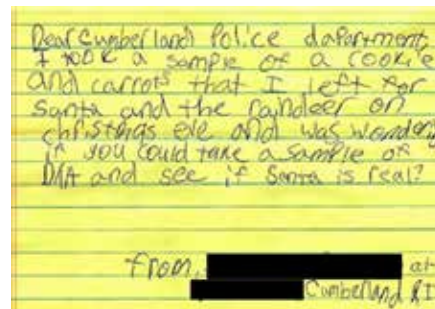 Dear Cumberland Police dapartment,
I took a sample of a cookie
and carrots that I left for
santa and the raindeer on
christmas eve and was wondery
if you could take a sample of
DNA and see if Santa is real?
from, at
Cumberland RI